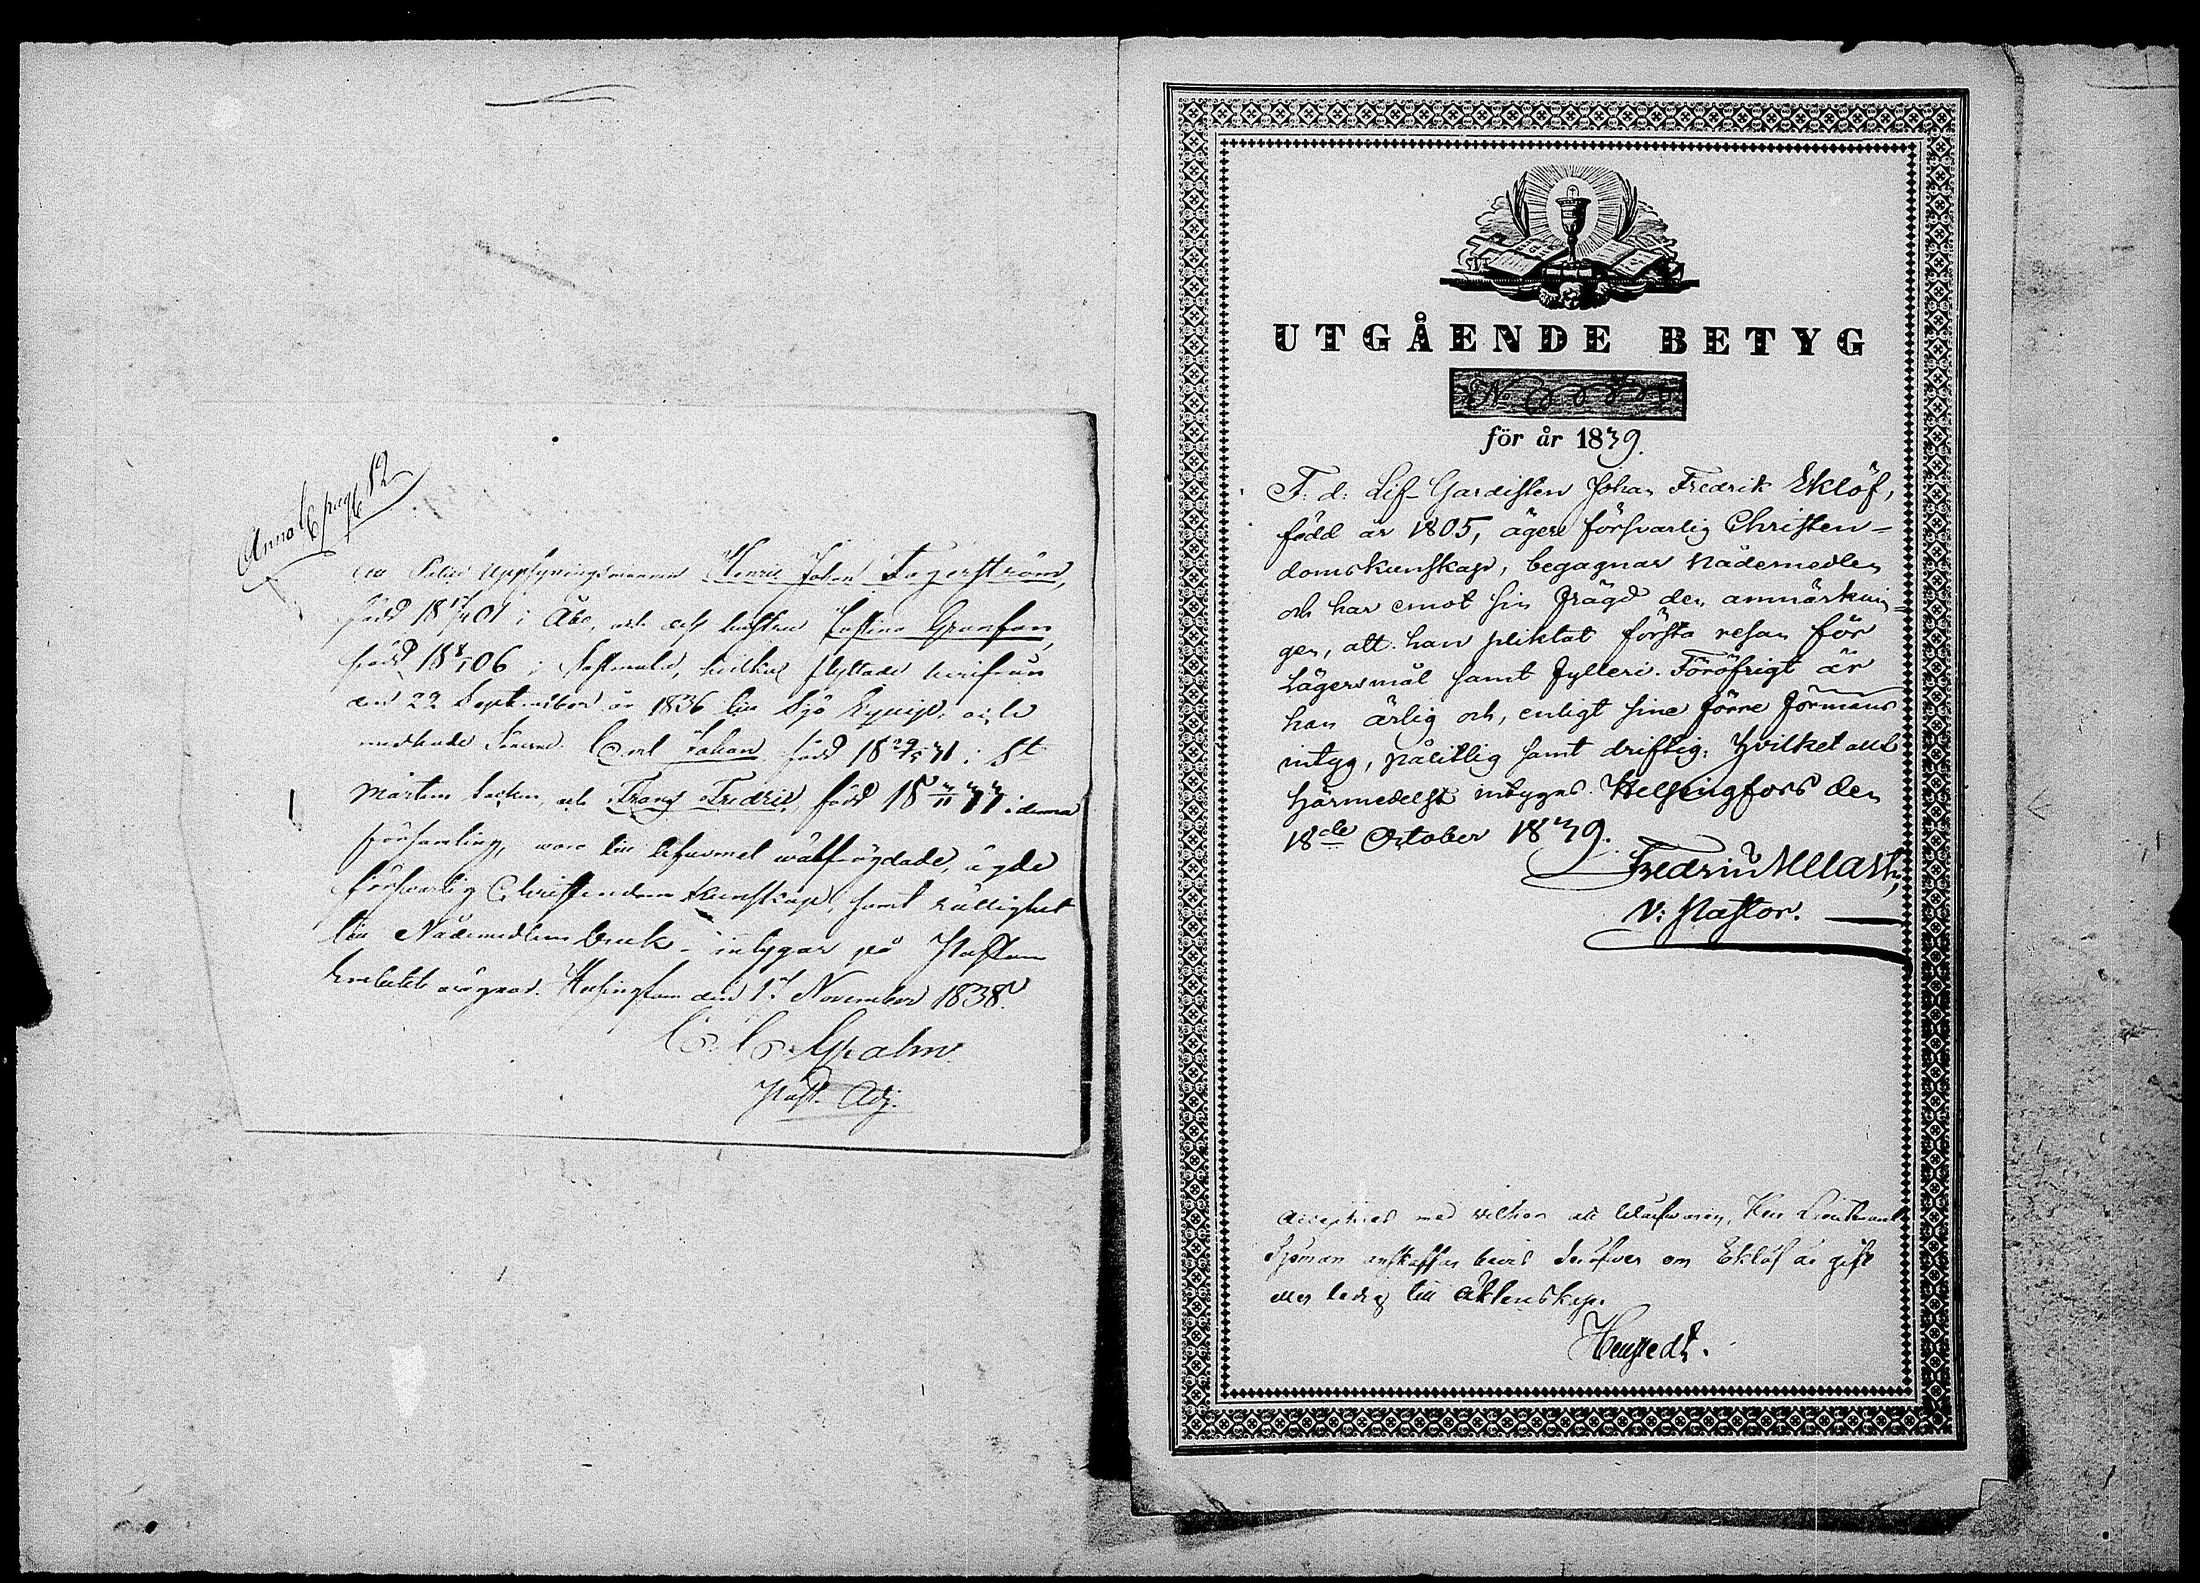 Anno pag 12
Uppsyningsmannen Henric Johan Fagerström,
född 18 17/4 01 i Åbo, och dess hustru Justina Granfon,
född 18 8/1 06 i hvilka flyttade härifrån
den 22 September år 1836 till Sjö Equip. egde
medhade Sönerne Carl Johan född 18 29/5 31 i St
Mårtens Socken, och Frans Fredric, född 18 3/11 33 i denna
församling, woro till lefvernet wälfrägdade, ägde
försvarlig Christendoms kunskap, samt
till Nådemedlens bruk - intygar på Pastors
Embetets wägnar. Helsingfors den 17 November 1838.
C. C. Spalm
Past. Adj.
UTGÅENDE BETYG
No
för år 1839.
F: d: Lif-Gardisten Johan Fredrik Eklöf,
född år 1805, äger försvarlig Christen=
domskunskap, begagnar nådemedlen
och har emot sin frägd den anmärknin=
gen, att han pliktat första resan för
Lägersmål samt fylleri. Föröfrigt är
han ärlig och, enligt sine förre förmäns
intyg, pålitlig samt driftig; Hvilket allt
härmedelst intygas. Helsingfors den
18de October 1839.
Fredric Mellast,
V: Pastor.
Accepteras med vilkor att Herr Lieutenant
Sjöman anskaffar bevis deröfver om Eklöf är gift
eller ledig till äktenskap.